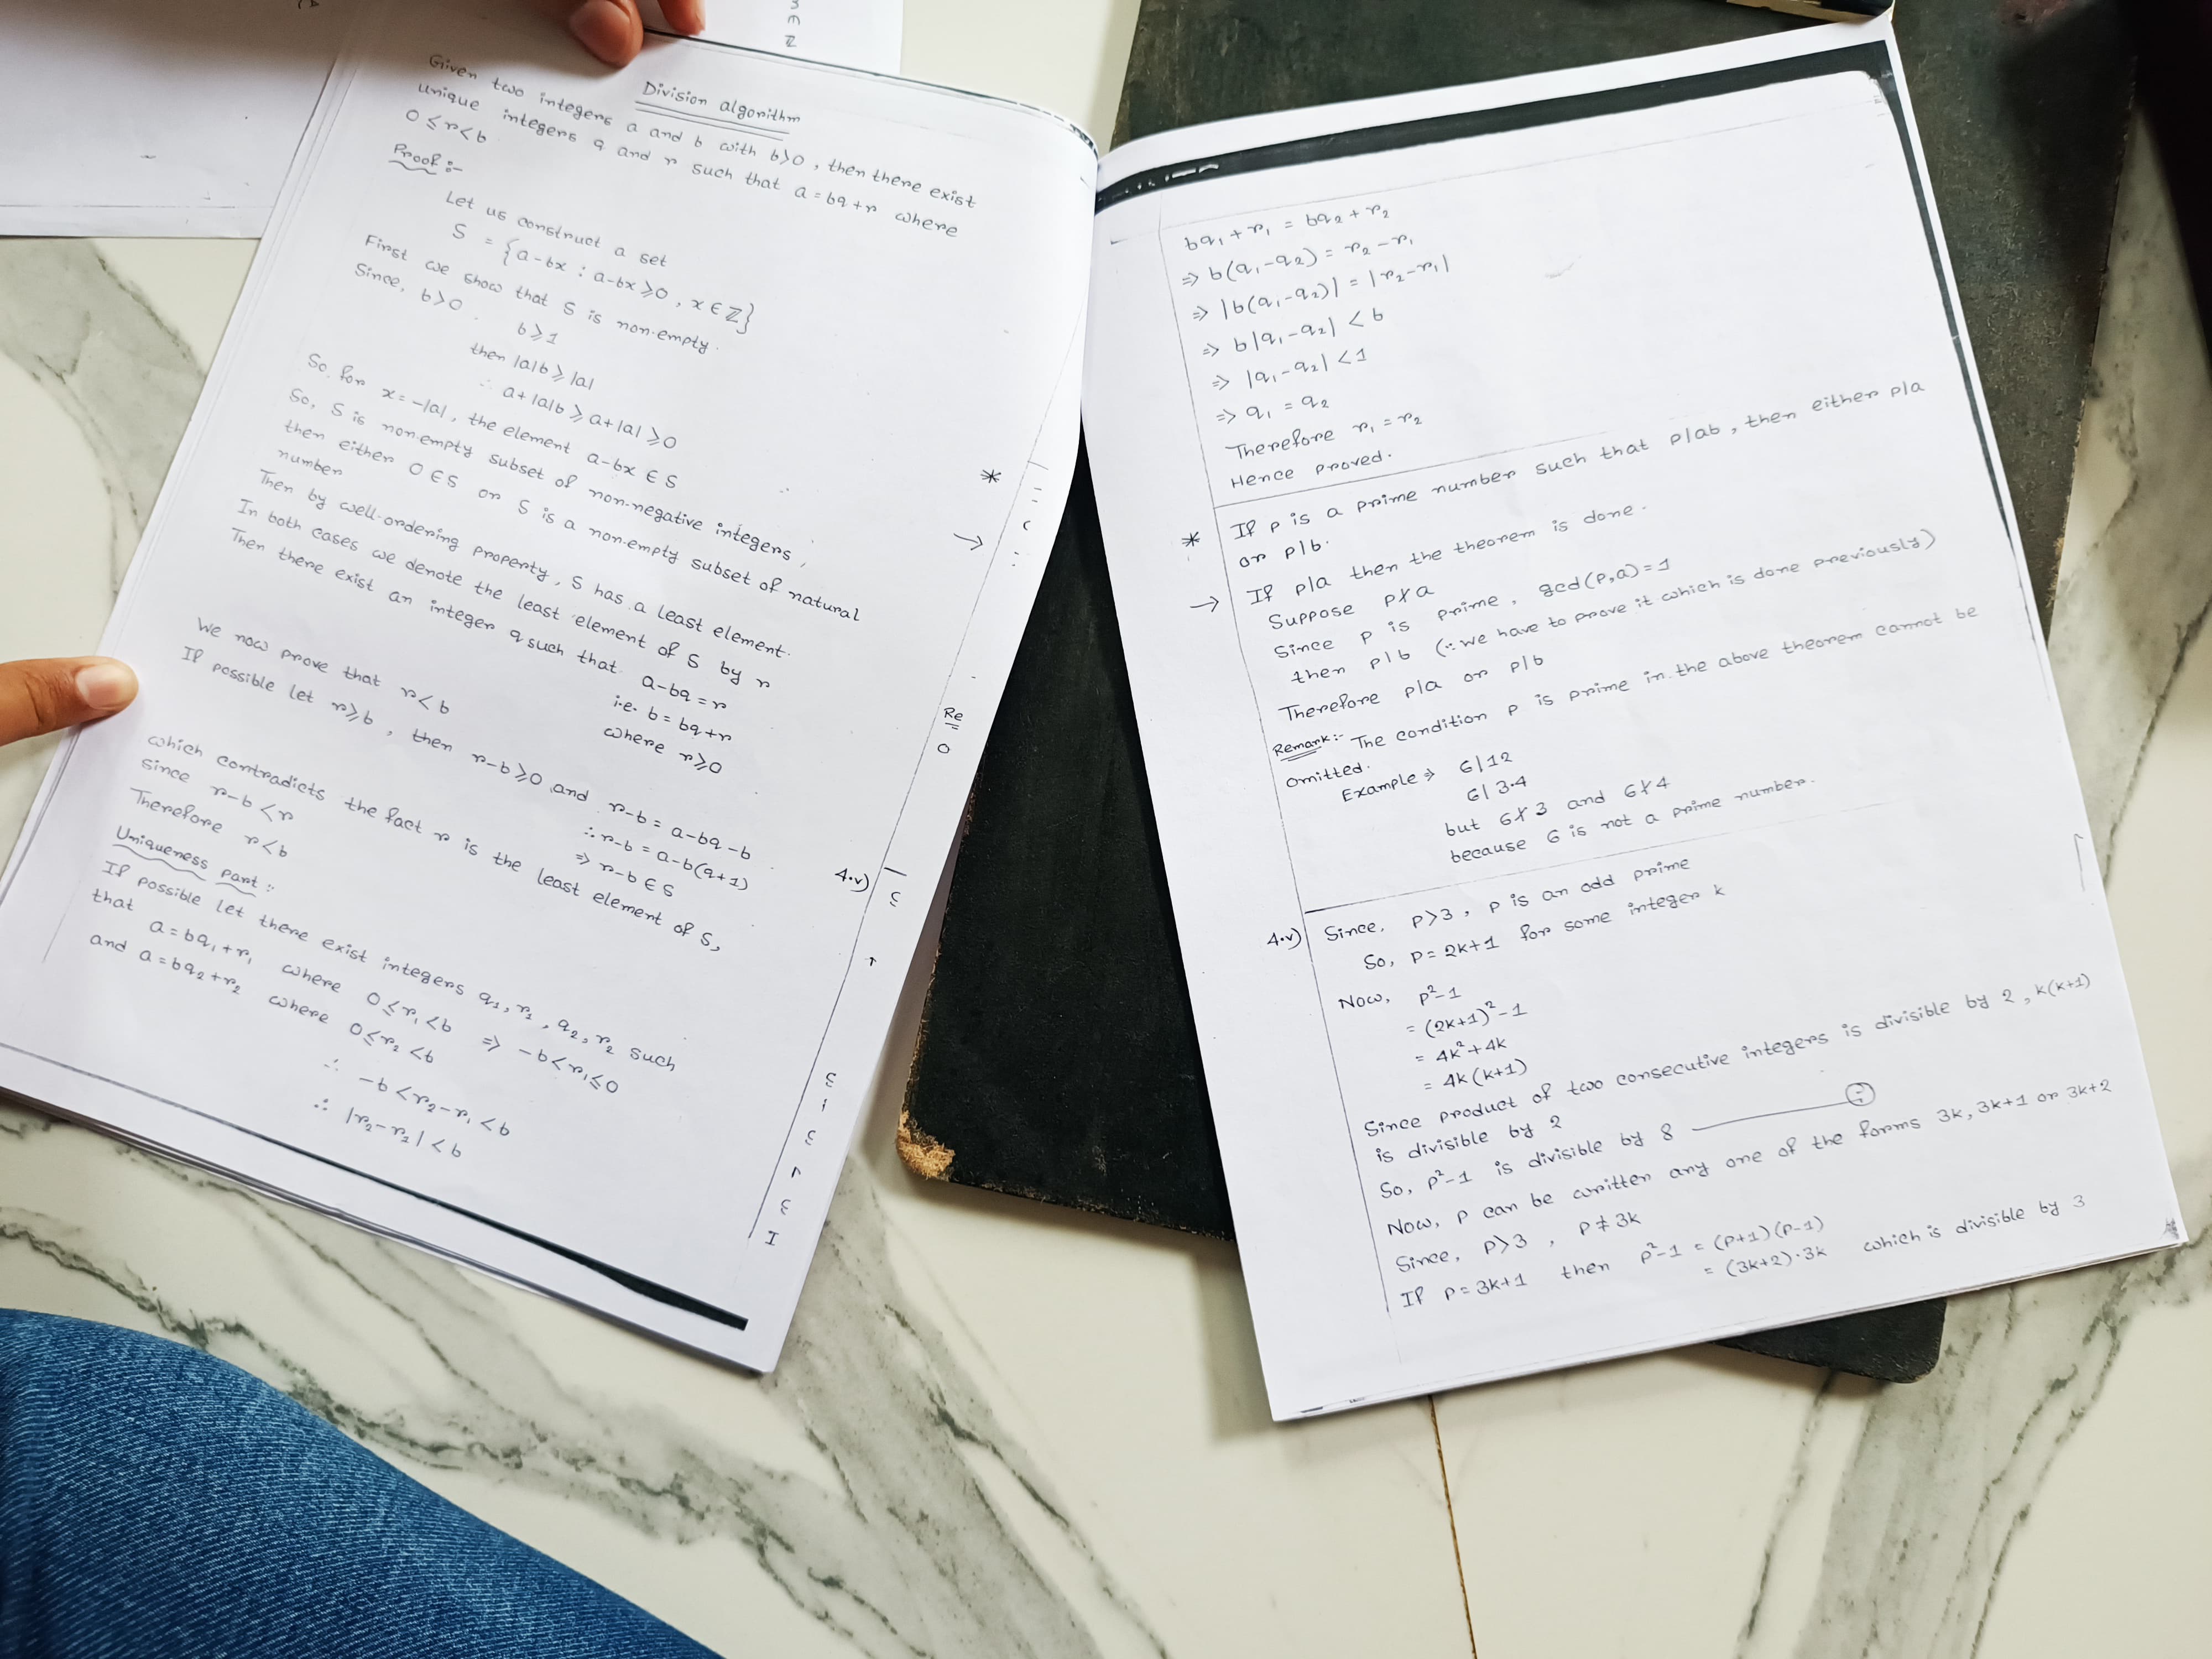 Division algorithm
Given two integers a and b with b>0, then there exist
unique integers q and r such that a = bq+r where
0 ≤ r < b
Proof :-
Let us construct a set
S = {a-bx : a-bx ≥ 0, x ∈ ℤ}
First we show that S is non-empty.
Since, b>0.
b ≥ 1
then |a|b ≥ |a|
∴ a+|a|b ≥ a+|a| ≥ 0
So for x = -|a|, the element a-bx ∈ S
So, S is non-empty subset of non-negative integers,
then either 0 ∈ S or S is a non-empty subset of natural
number
Then by well-ordering property, S has a least element.
In both cases we denote the least element of S by r
Then there exist an integer q such that a-bq = r
i.e. b = bq+r
where r ≥ 0
We now prove that r < b
If possible let r ≥ b, then r-b ≥ 0 and r-b = a-bq-b
∴ r-b = a-b(q+1)
⇒ r-b ∈ S
which contradicts the fact r is the least element of S,
since r-b < r
Therefore r < b
Uniqueness part :-
If possible let there exist integers q₁, r₁, q₂, r₂ such
that a = bq₁+r₁ where 0 ≤ r₁ < b ⇒ -b < r₁ ≤ 0
and a = bq₂+r₂ where 0 ≤ r₂ < b
∴ -b < r₂-r₁ < b
∴ |r₂-r₁| < b
*
→
Re
4.v)
bq₁+r₁ = bq₂+r₂
⇒ b(q₁-q₂) = r₂-r₁
⇒ |b(q₁-q₂)| = |r₂-r₁|
⇒ b|q₁-q₂| < b
⇒ |q₁-q₂| < 1
⇒ q₁ = q₂
Therefore r₁ = r₂
Hence proved.
* If p is a prime number such that p|ab, then either p|a
or p|b.
→ If p|a then the theorem is done.
Suppose p∤a
Since p is prime, gcd(p,a)=1
then p|b (∵ we have to prove it which is done previously)
Therefore p|a or p|b
Remark:- The condition p is prime in the above theorem cannot be
omitted.
Example ⇒ 6|12
6|3.4
but 6∤3 and 6∤4
because 6 is not a prime number.
4.v) Since, p>3, p is an odd prime
So, p = 2k+1 for some integer k
Now, p²-1
= (2k+1)²-1
= 4k²+4k
= 4k(k+1)
Since product of two consecutive integers is divisible by 2, k(k+1)
is divisible by 2
So, p²-1 is divisible by 8
Now, p can be written any one of the forms 3k, 3k+1 or 3k+2
Since, p>3, p ≠ 3k
If p = 3k+1 then p²-1 = (p+1)(p-1)
= (3k+2).3k which is divisible by 3